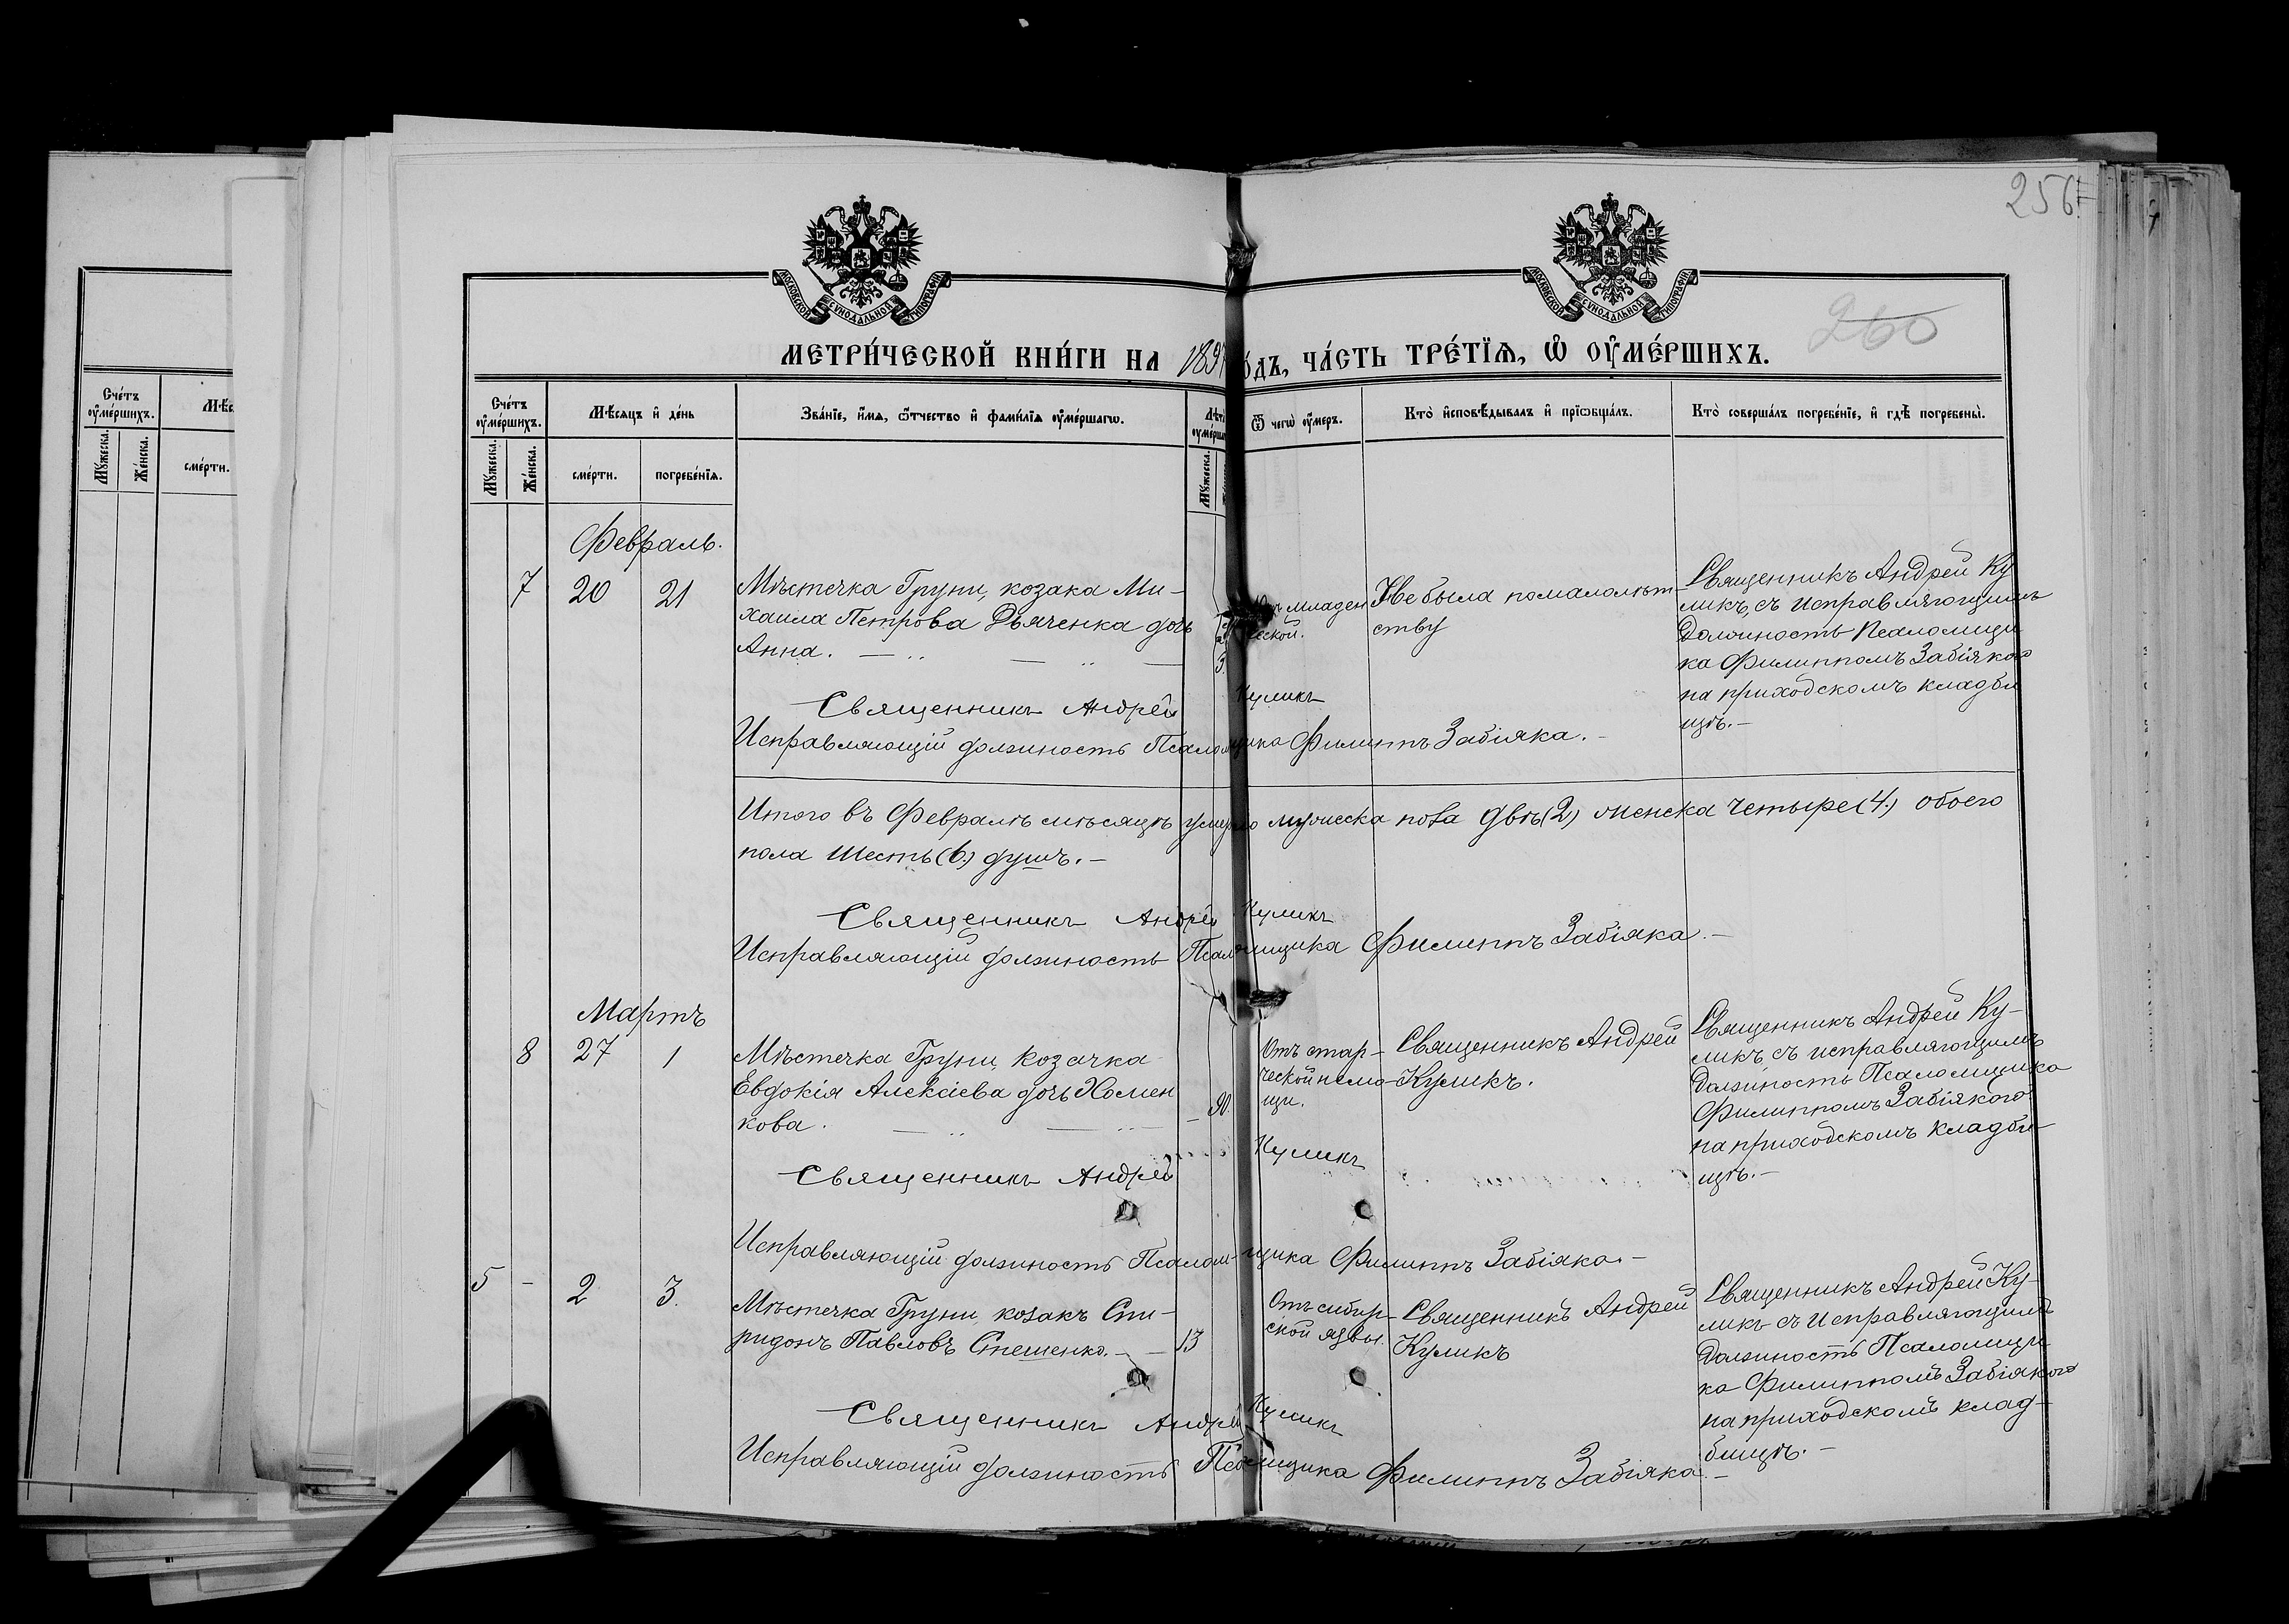 256
260
МОСКОВСКОЙ СѴНОДАЛЬНОЙ ТИПОГРАФІИ
МОСКОВСКОЙ СѴНОДАЛЬНОЙ ТИПОГРАФІИ
МЕТРИ́ЧЕСКОЙ КНИ́ГИ НА 189 ОДЪ, ЧА́СТЬ ТРЕ́ТЇѦ, Ѽ ОУ҆МЕ́РШИХЪ.
Сче́тъ оу҆ме́ршихъ.
Мѣсѧцъ и҆ де́нь
Зва́нїе, и҆́мѧ, ѻ҆́тчество и҆ фами́лїѧ оу҆ме́ршагѡ.
Лѣт
оу҆ме́рша
Ѿ чегѡ̀ оу҆́меръ.
Кто̀ и҆сповѣ́дывалъ и҆ прїѡбща́лъ.
Кто̀ соверша́лъ погребе́нїе, и҆ гдѣ̀ погребены̀.
Мꙋ́жеска.
Же́нска.
сме́рти.
погребе́нїѧ.
Мꙋ́жеска.
Сче́тъ оу҆ме́ршихъ.
Мꙋ́жеска.
Же́нска.
сме́рти.
Февраль.
7 20 21 Мѣстечка Груни, козака Ми-
хаила Петрова Дяченка дочь
Анна.
3.
младен
ческой.
Не была по малолѣт
ству
Священникъ Андрей Ку
ликъ, съ исправляющимъ
должность Псаломщи
ка Филиппомъ Забіякою
на приходскомъ кладби
щѣ.-
Священникъ Андрей Куликъ
Исправляющій должность Псаломщика Филиппъ Забіяка.-
Итого въ Февралѣ мѣсяцѣ умерло мужеска пола двѣ (2) женска четыре (4.) обоего
пола шесть (6.) душъ.-
Священникъ Андрей Куликъ
Исправляющій должность Псаломщика Филиппъ Забіяка.-
Мартъ
8 27 1 Мѣстечка Груни, козачка
Евдокія Алексіева дочь Хомен
кова.
90.
Отъ стар-
ческой немо-
щи.
Священникъ Андрей
Куликъ.
Священникъ Андрей Ку-
ликъ, съ исправляющимъ
должность Псаломщика
Филиппомъ Забіякою
на приходскомъ кладби-
щѣ.-
Священникъ Андрей Куликъ
Исправляющій должность Псаломщика Филиппъ Забіяка.-
5 - 2 3. Мѣстечка Груни, козакъ Спи-
ридонъ Павловъ Стешенко. - 13
Отъ сибир-
ской язвы.
Священникъ Андрей
Куликъ
Священникъ Андрей Ку-
ликъ съ исправляющимъ
должность Псаломщи
ка Филиппомъ Забіякою
на приходскомъ клад-
бищѣ.-
Священникъ Андрей Куликъ
Исправляющій должность Псаломщика Филиппъ Забіяка.-